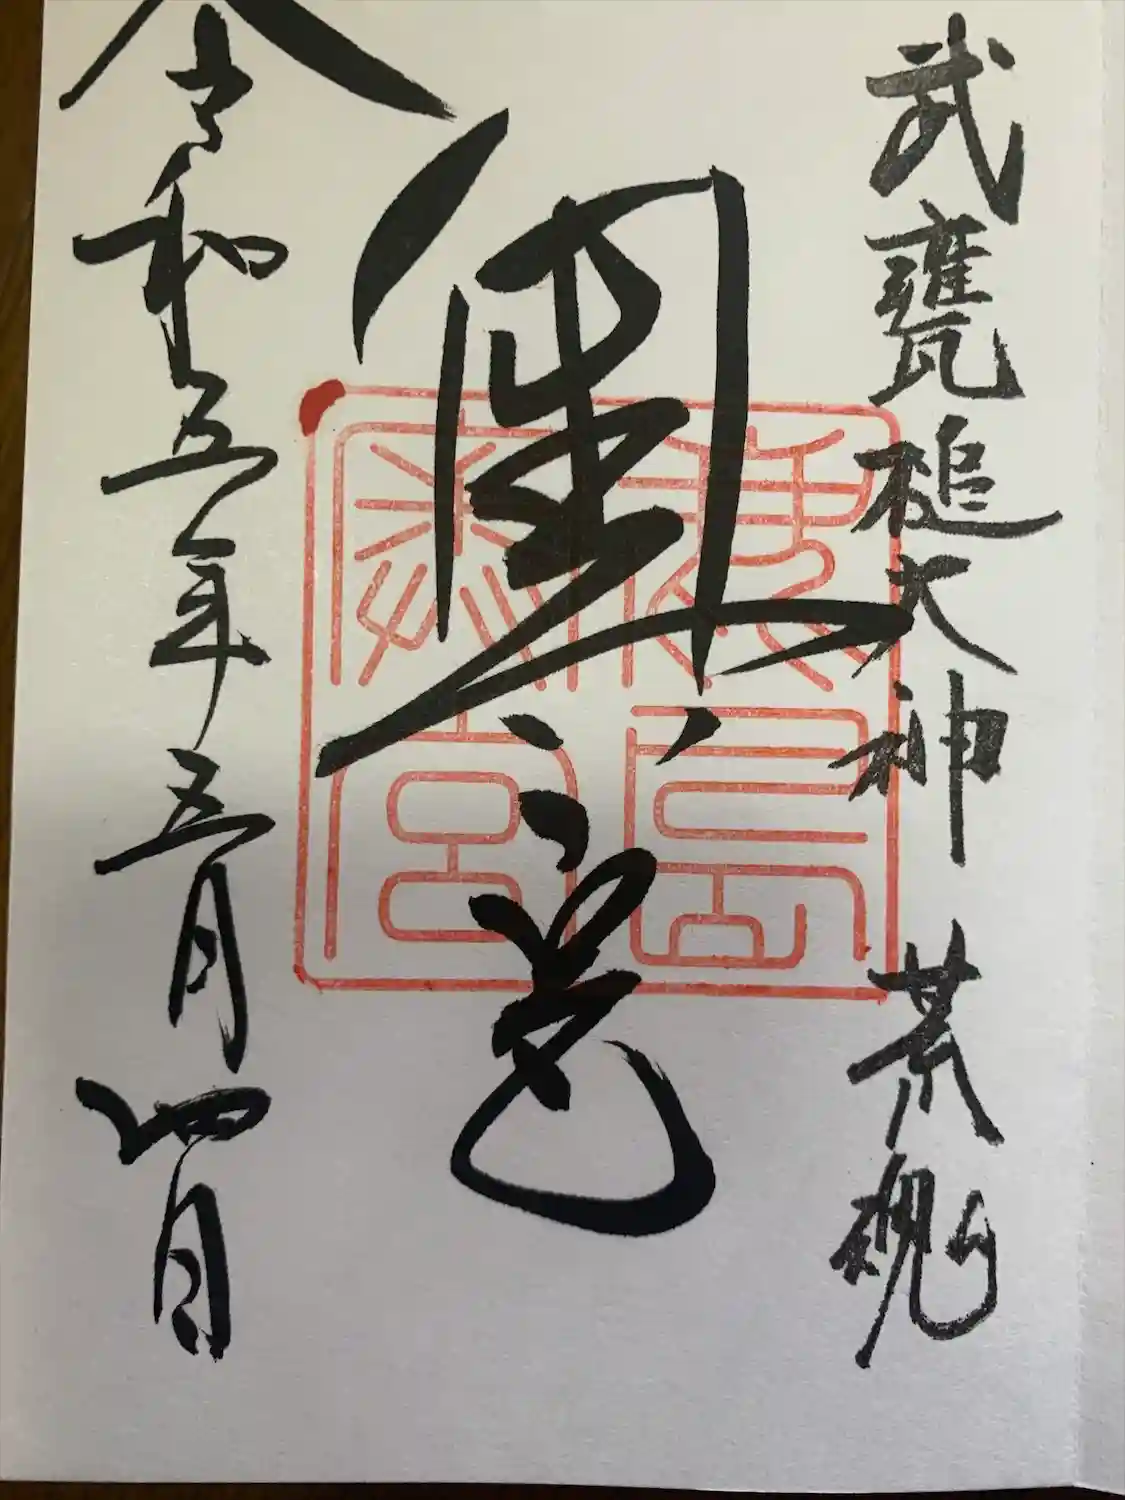 武甕槌大神 荒魂
奥宮
令和五年五月四日
鹿島奥宮